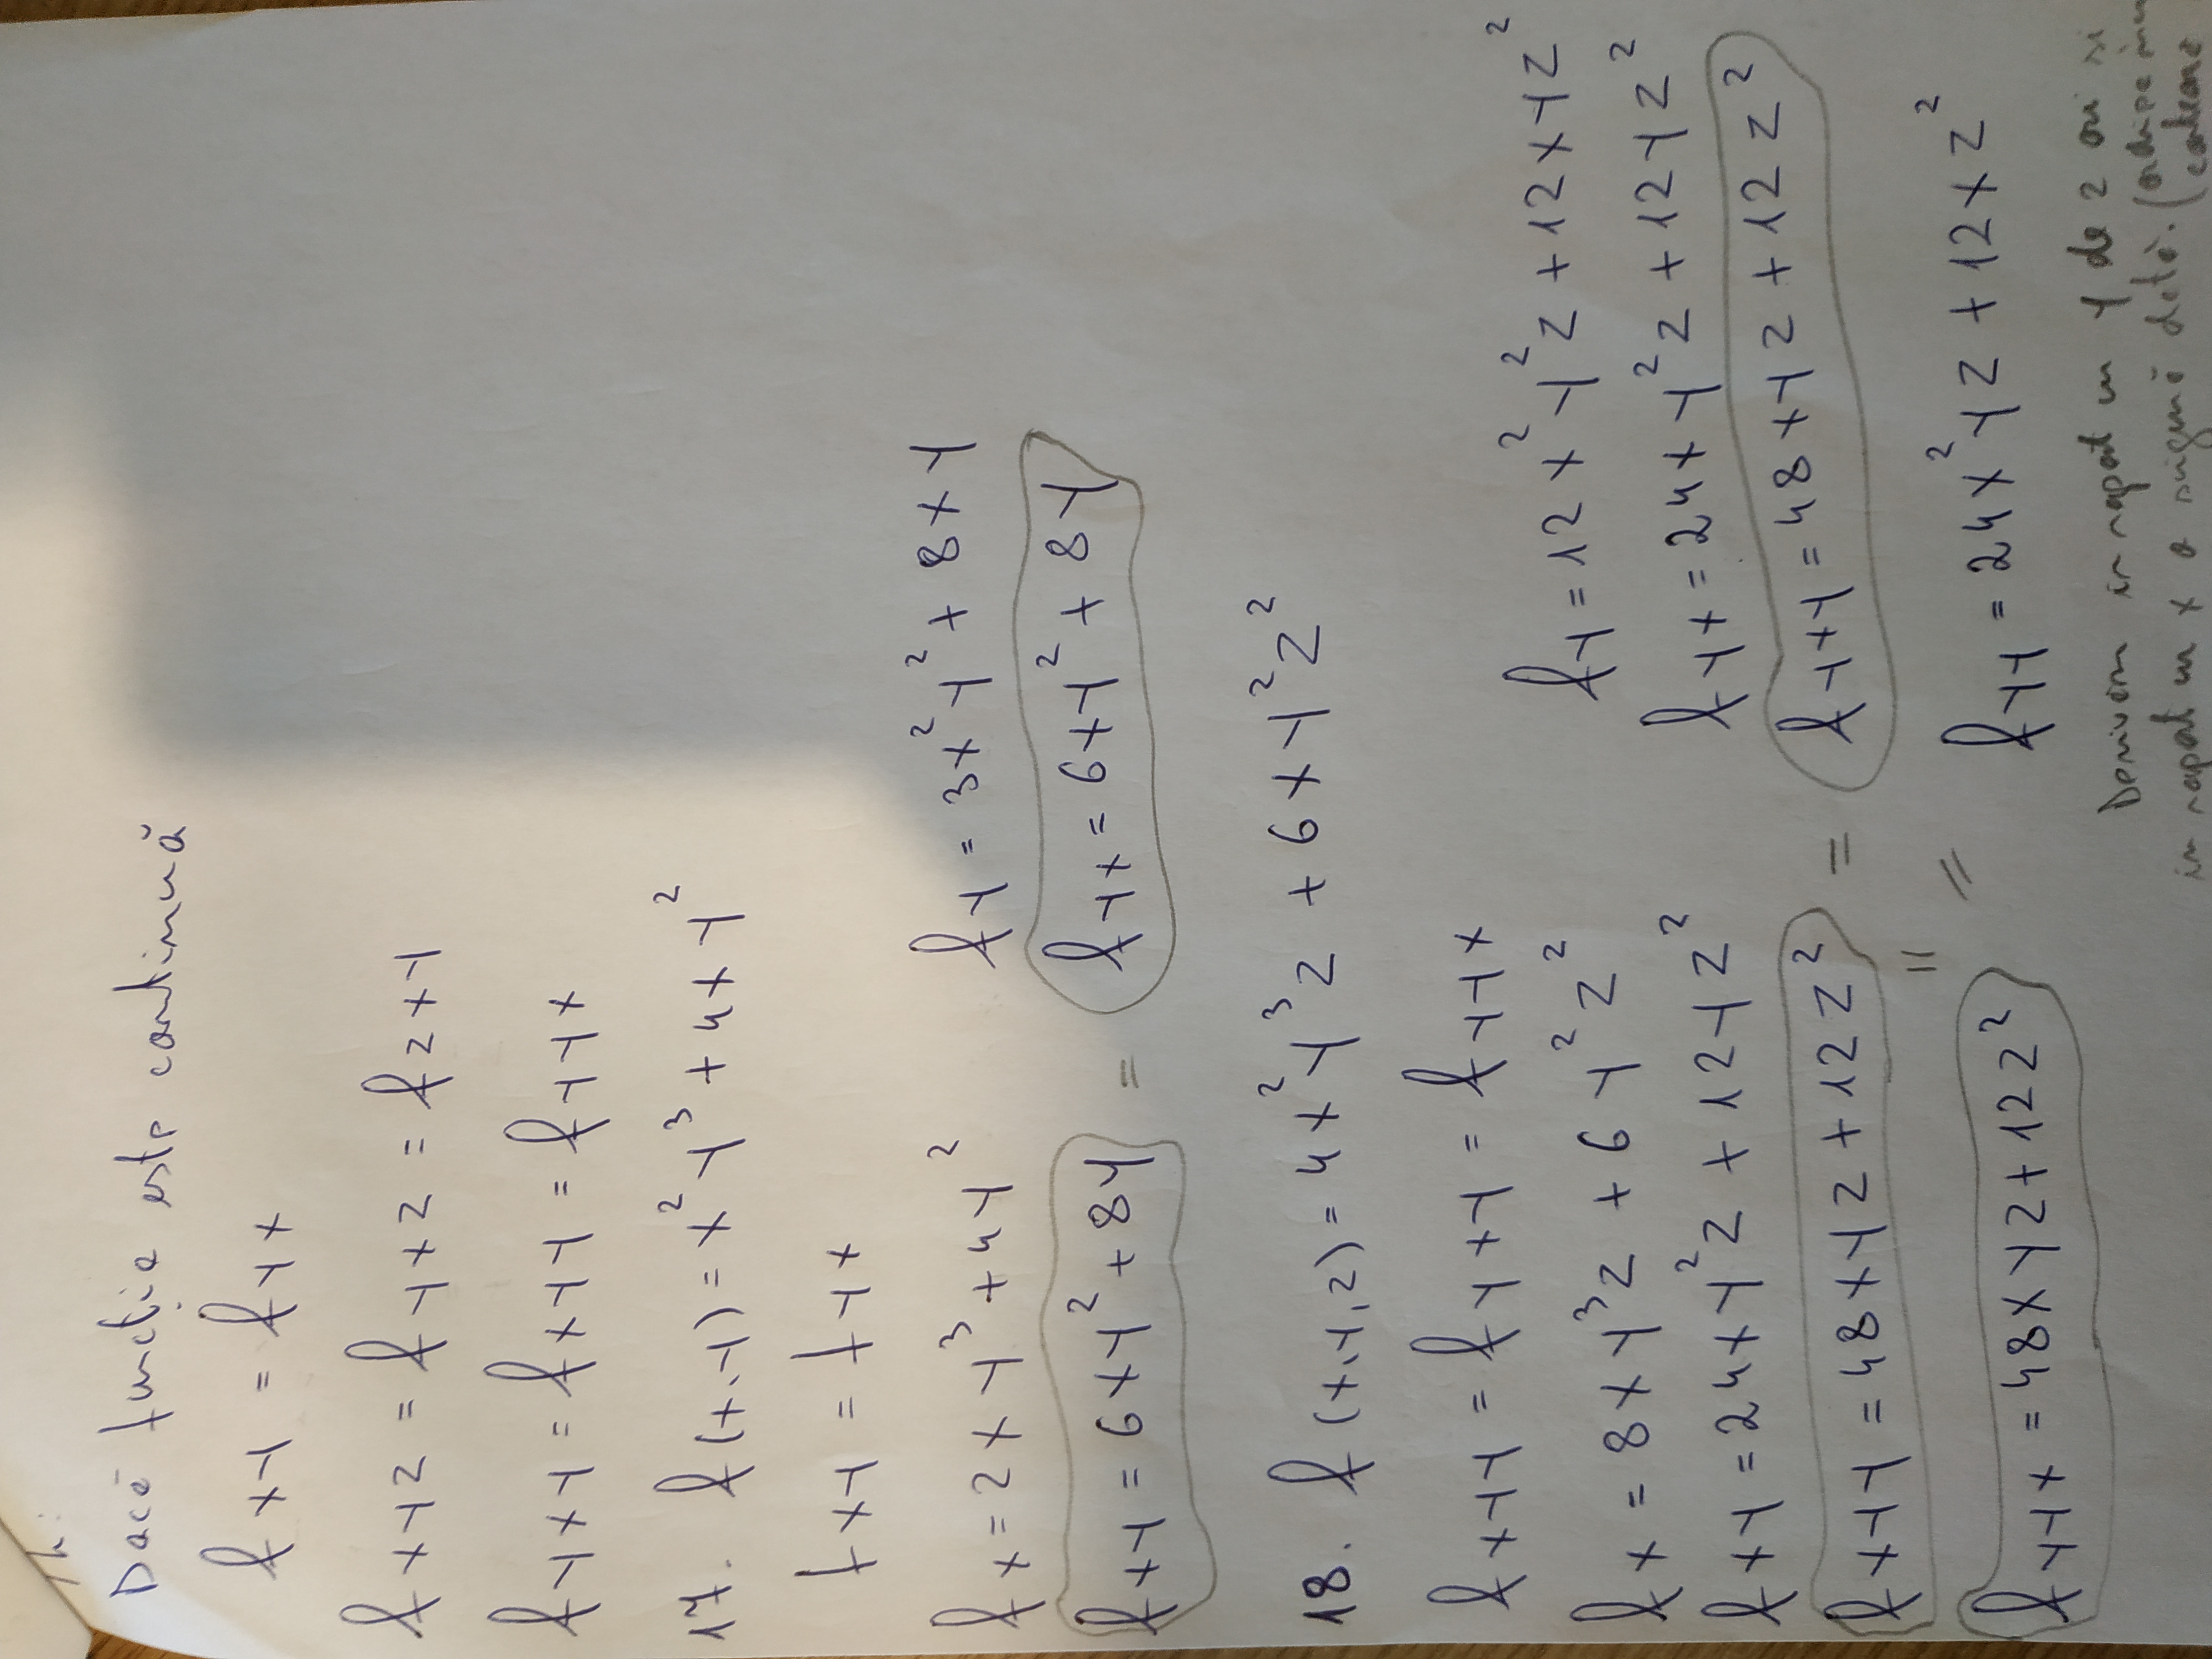 Th:
Dacă funcția este continuă
fxy = fyx
fxyz = fyxz = fzxy
fyxy = fxyy = fyyx
17. f(x,y) = x²y³ + 4xy²
fxy = fyx
fx = 2xy³ + 4y²
fy = 3x²y² + 8xy
fxy = 6xy² + 8y = fyx = 6xy² + 8y
18. f(x,y,z) = 4x²y³z + 6xy²z²
fxyy = fyxy = fyyx
fx = 8xy³z + 6y²z²
fy = 12x²y²z + 12xyz²
fxy = 24xy²z + 12yz²
fyx = 24xy²z + 12yz²
fxyy = 48xyz + 12z² = fyxy = 48xyz + 12z²
" =
fyyx = 48xyz + 12z²
fyy = 24x²yz + 12xz²
Derivăm în raport cu y de 2 ori si
in raport cu x o singură dată. (